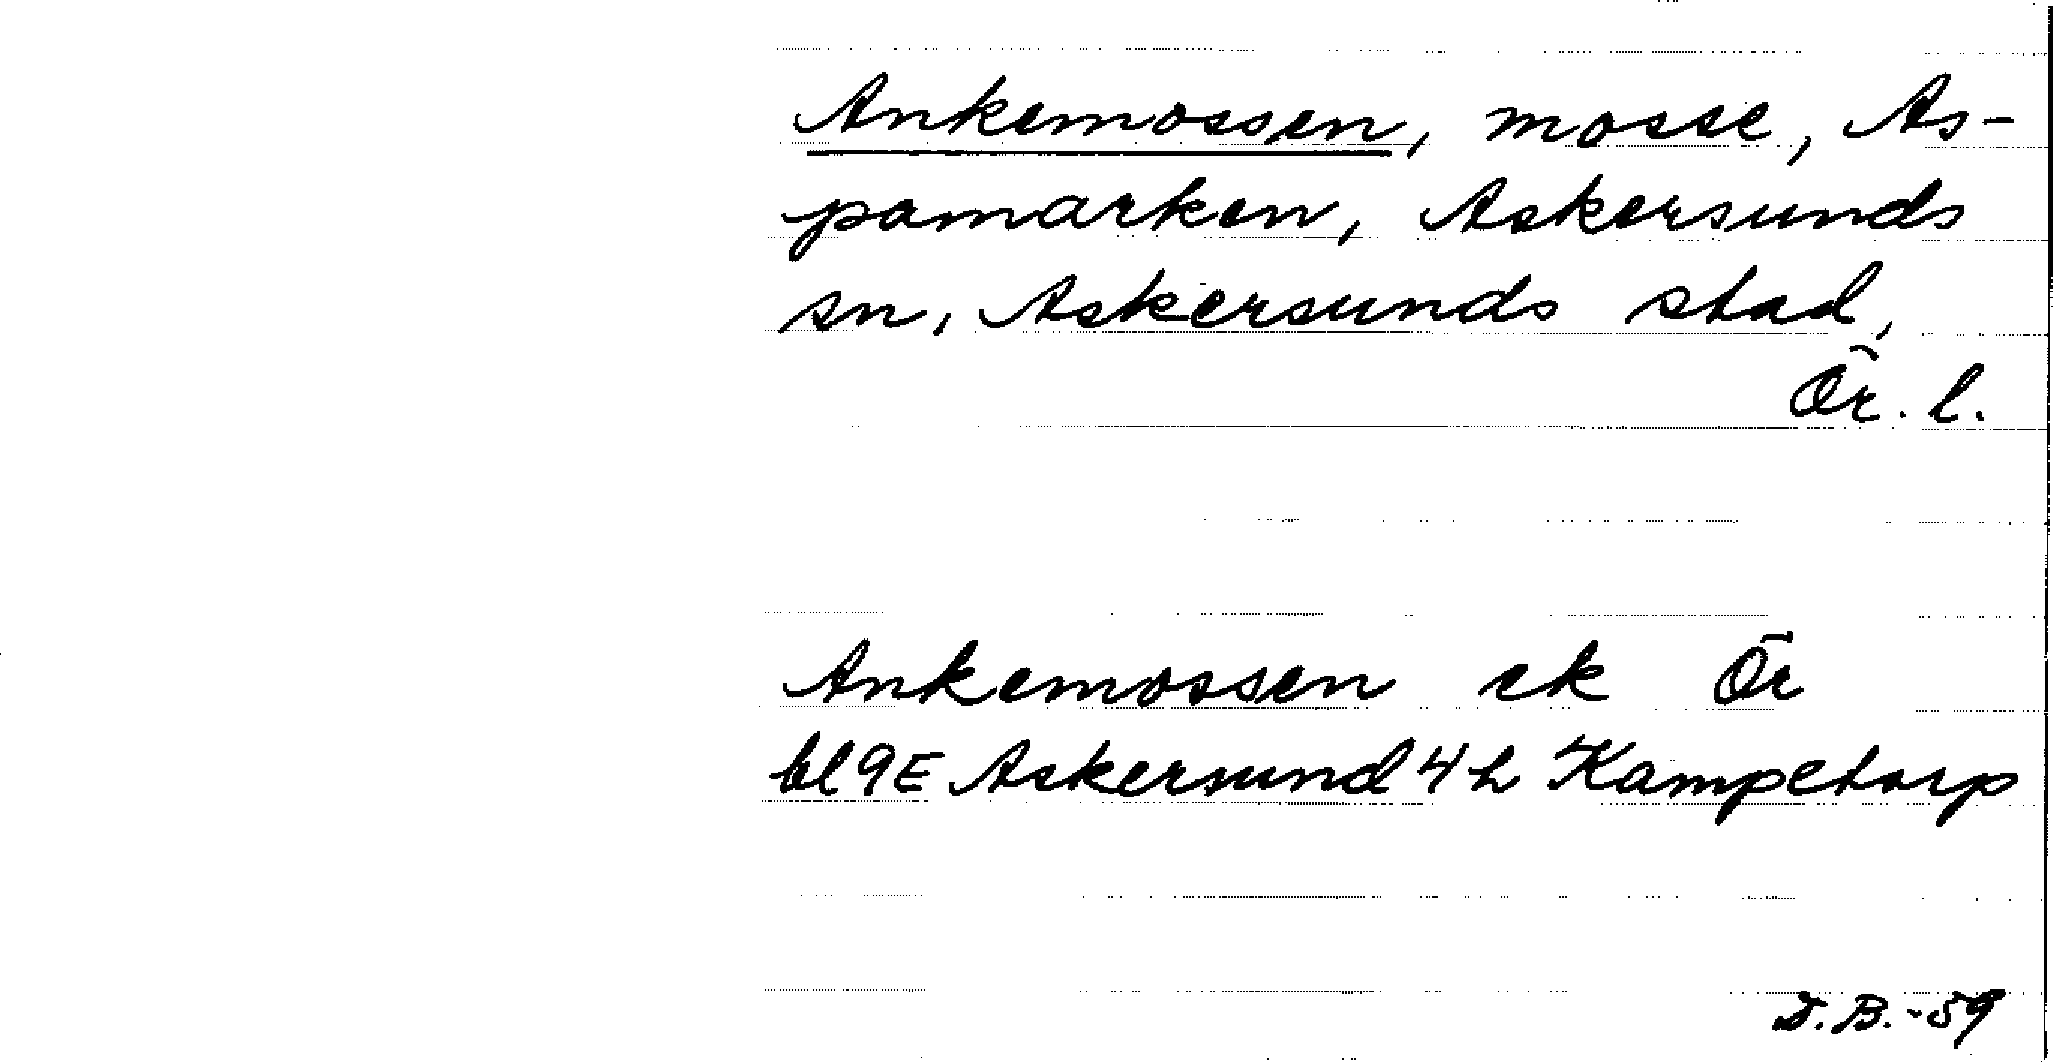 Ankemossen, mosse, As-
pamarken, Askersunds
sn, Askersunds stad,
Ör. l.
Ankemossen ek Ör
bl 9E Askersund 4 h Kampetorp
D.B.-59